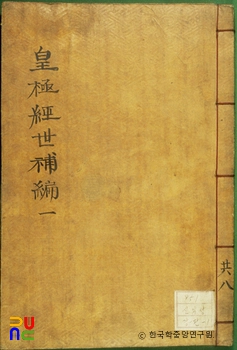 皇極經世補編 一
共八
© 한국학중앙연구원